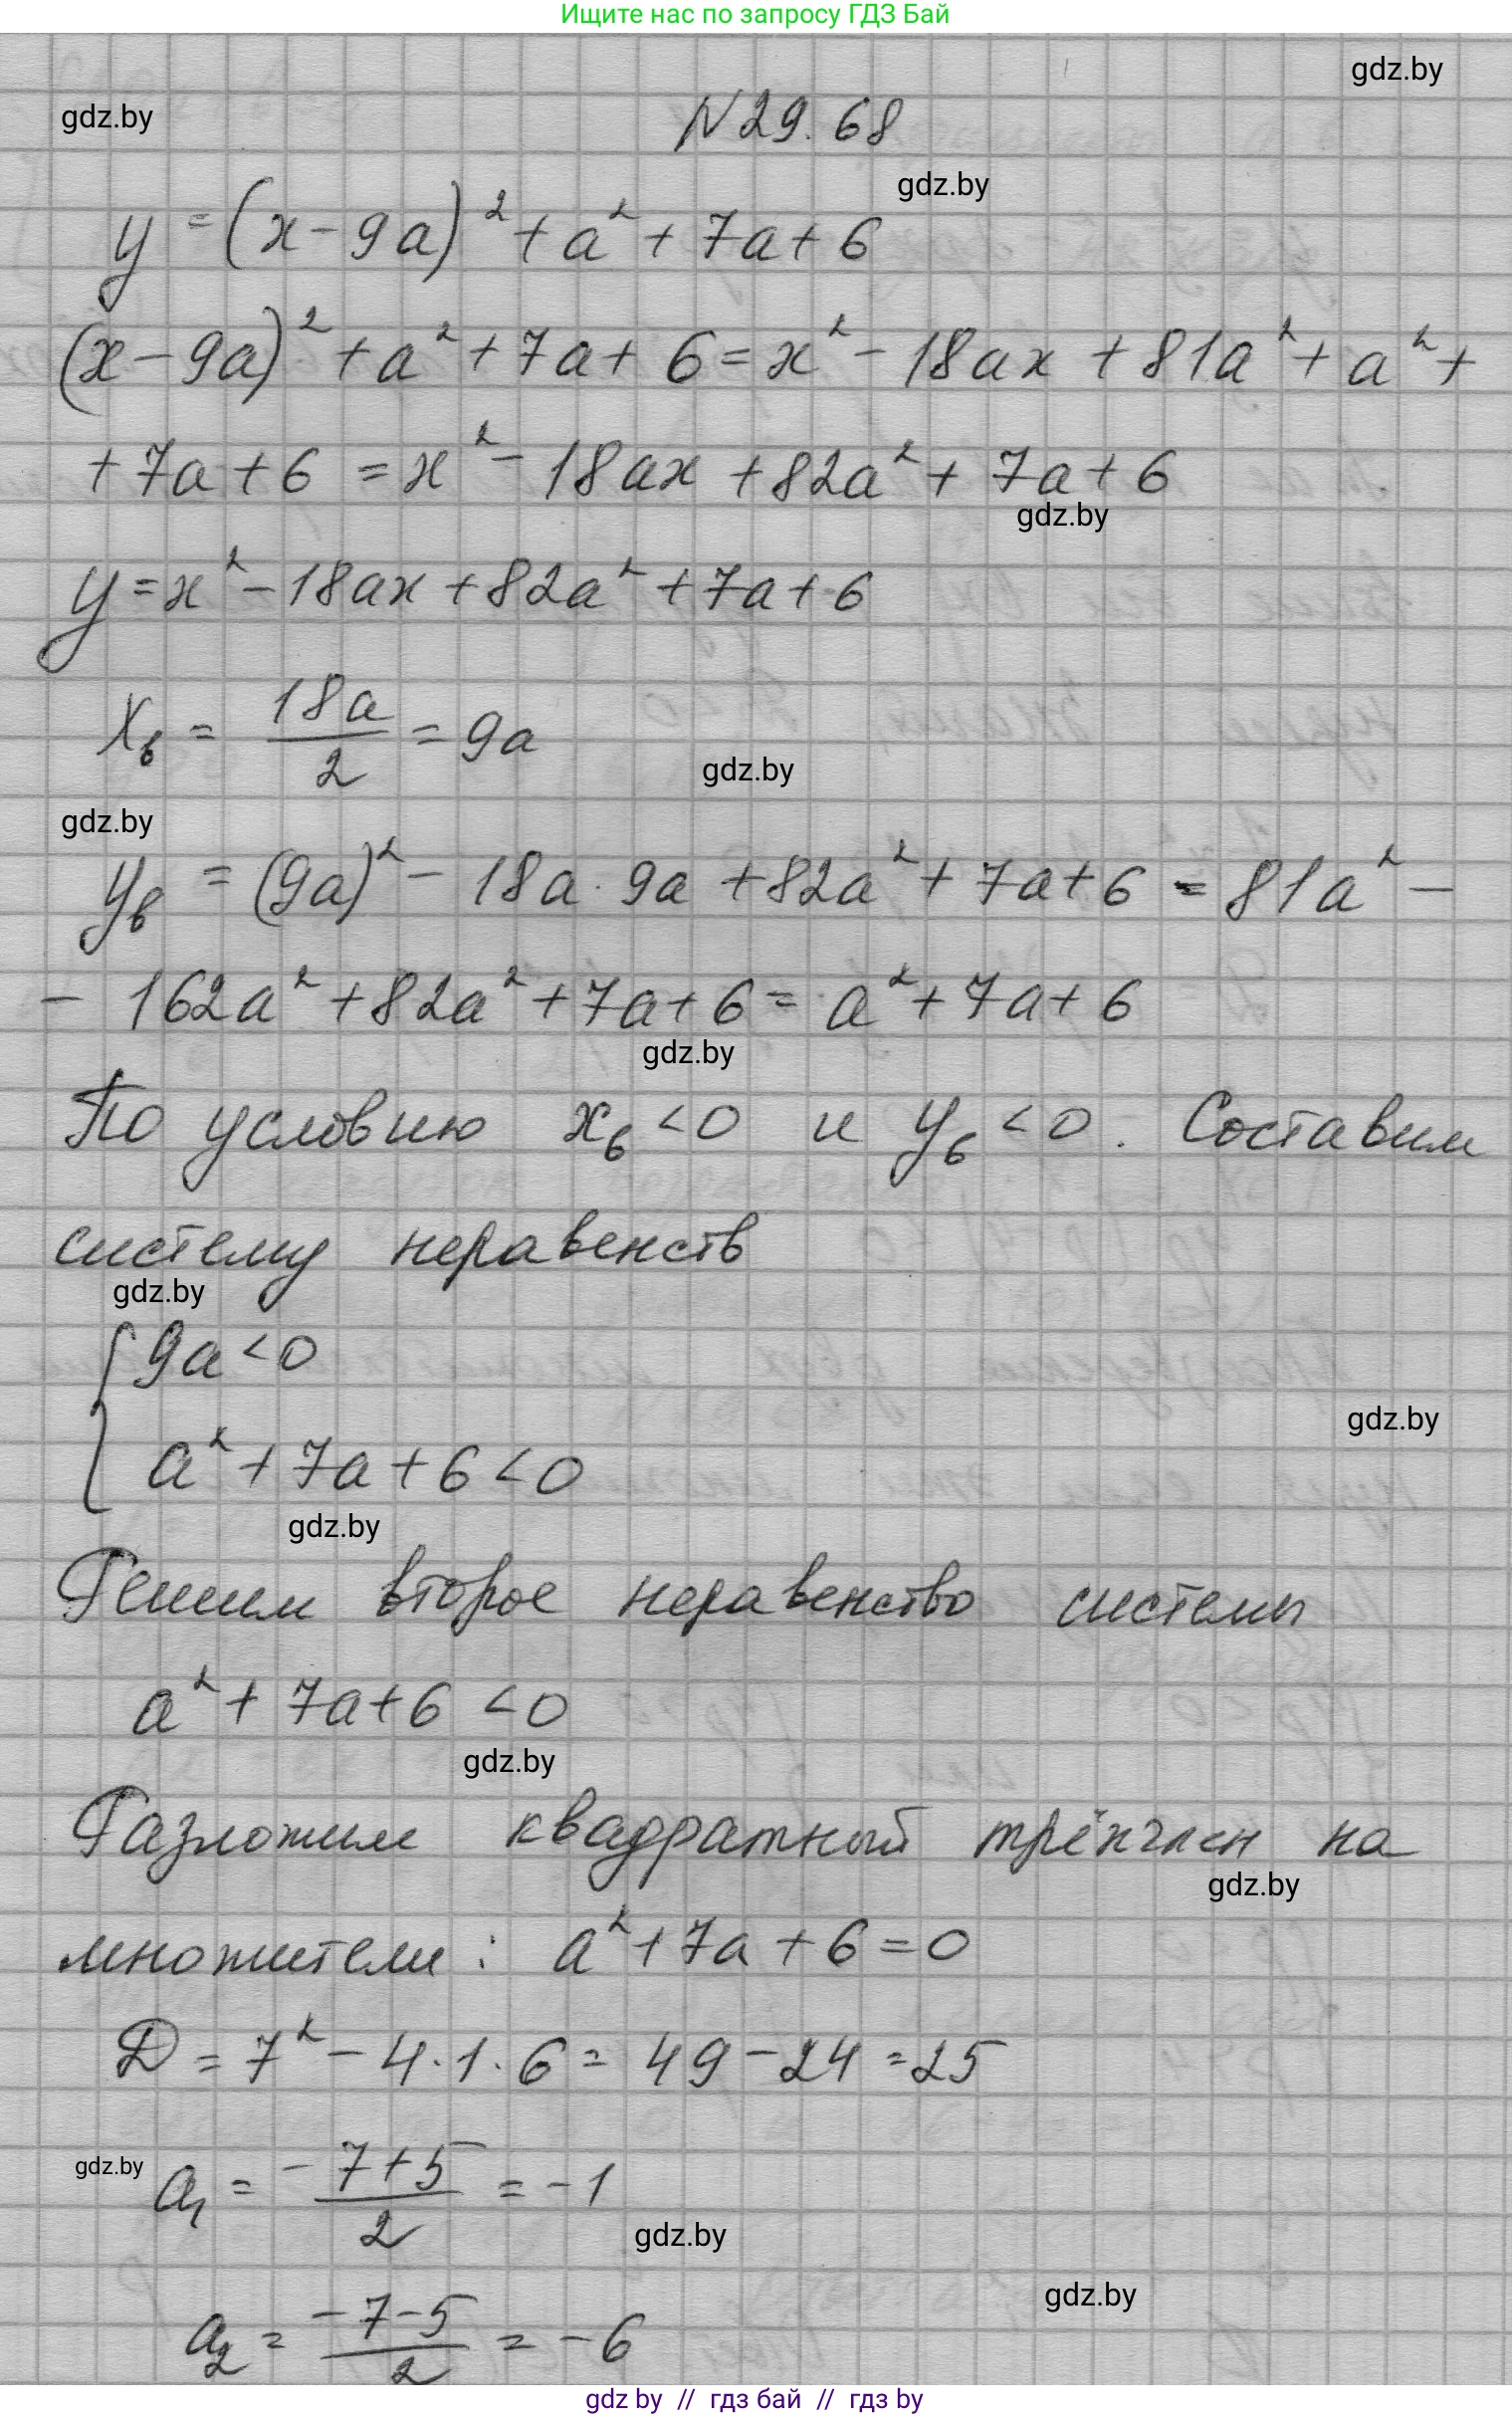 Ищите нас по запросу ГДЗ Бай
gdz.by
gdz.by
N 29.68
gdz.by
y = (x - 9a)² + a² + 7a + 6
(x - 9a)² + a² + 7a + 6 = x² - 18ax + 81a² + a² +
+ 7a + 6 = x² - 18ax + 82a² + 7a + 6
gdz.by
y = x² - 18ax + 82a² + 7a + 6
xв = 18a/2 = 9a
gdz.by
gdz.by
yв = (9a)² - 18a · 9a + 82a² + 7a + 6 = 81a² -
- 162a² + 82a² + 7a + 6 = a² + 7a + 6
gdz.by
По условию xв < 0 и yв < 0. Составим
систему неравенств
gdz.by
{ 9a < 0
gdz.by
a² + 7a + 6 < 0
gdz.by
Решим второе неравенство системы
a² + 7a + 6 < 0
gdz.by
Разложим квадратный трёхчлен на
gdz.by
множители: a² + 7a + 6 = 0
D = 7² - 4 · 1 · 6 = 49 - 24 = 25
gdz.by
a₁ = (-7+5)/2 = -1
gdz.by
gdz.by
a₂ = (-7-5)/2 = -6
gdz by // гдз бай // гдз by